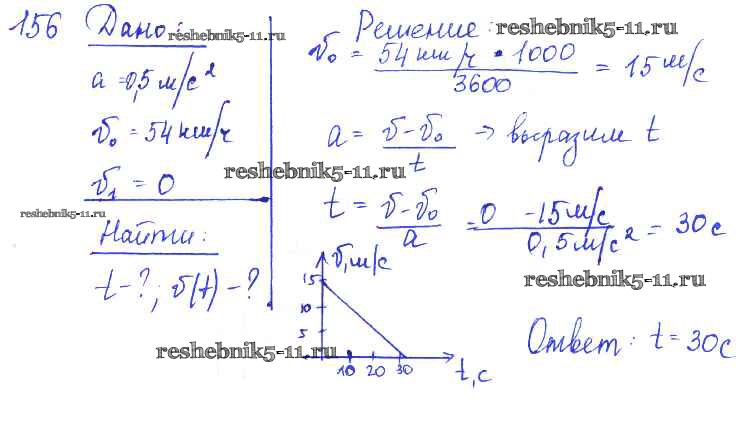 156 Дано: reshebnik5-11.ru
a = 0,5 м/с²
v₀ = 54 км/ч
v₁ = 0
reshebnik5-11.ru
Найти:
t - ?; v(t) - ?
Решение: reshebnik5-11.ru
v₀ = 54 км/ч · 1000 / 3600 = 15 м/с
a = v - v₀ / t → выразим t
reshebnik5-11.ru
t = v - v₀ / a = 0 - 15 м/с / 0,5 м/с² = 30 с
reshebnik5-11.ru
v, м/с
15
10
5
10 20 30
t, с
reshebnik5-11.ru
Ответ: t = 30 с